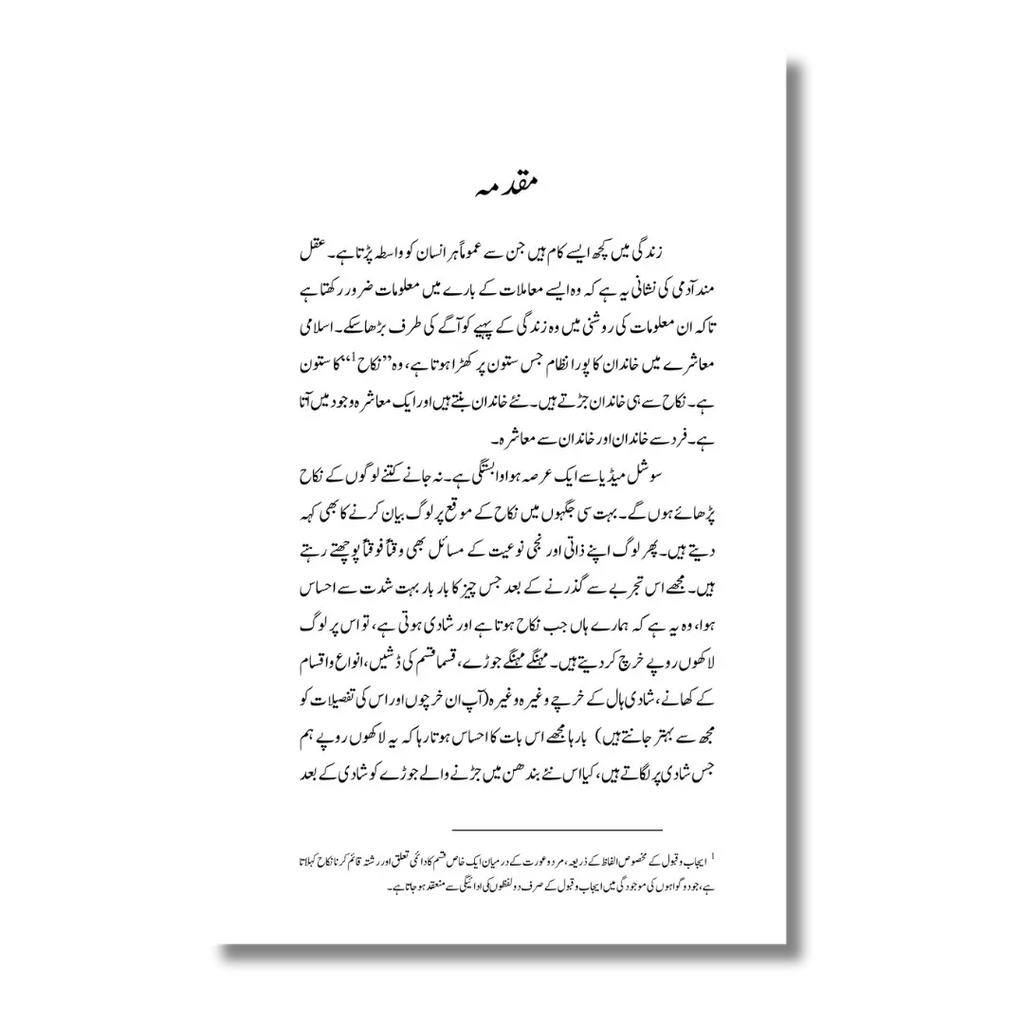 مقدمہ
زندگی میں کچھ ایسے کام ہیں جن سے عموماً ہر انسان کو واسطہ پڑتا ہے۔ عقل
مند آدمی کی نشانی یہ ہے کہ وہ ایسے معاملات کے بارے میں معلومات ضرور رکھتا ہے
تاکہ ان معلومات کی روشنی میں وہ زندگی کے پہیے کو آگے کی طرف بڑھا سکے۔ اسلامی
معاشرے میں خاندان کا پورا نظام جس ستون پر کھڑا ہوتا ہے، وہ ”نکاح1“ کا ستون
ہے۔ نکاح سے ہی خاندان جڑتے ہیں۔ نئے خاندان بنتے ہیں اور ایک معاشرہ وجود میں آتا
ہے۔ فرد سے خاندان اور خاندان سے معاشرہ۔
سوشل میڈیا سے ایک عرصہ ہوا وابستگی ہے۔ نہ جانے کتنے لوگوں کے نکاح
پڑھائے ہوں گے۔ بہت سی جگہوں میں نکاح کے موقع پر لوگ بیان کرنے کا بھی کہہ
دیتے ہیں۔ پھر لوگ اپنے ذاتی اور نجی نوعیت کے مسائل بھی وقتاً فوقتاً پوچھتے رہتے
ہیں۔ مجھے اس تجربے سے گذرنے کے بعد جس چیز کا بار بار بہت شدت سے احساس
ہوا، وہ یہ ہے کہ ہمارے ہاں جب نکاح ہوتا ہے اور شادی ہوتی ہے، تو اس پر لوگ
لاکھوں روپے خرچ کر دیتے ہیں۔ مہنگے مہنگے جوڑے، قسما قسم کی ڈشیں، انواع و اقسام
کے کھانے، شادی ہال کے خرچے وغیرہ وغیرہ (آپ ان خرچوں اور اس کی تفصیلات کو
مجھ سے بہتر جانتے ہیں) بارہا مجھے اس بات کا احساس ہوتا رہا کہ یہ لاکھوں روپے ہم
جس شادی پر لگاتے ہیں، کیا اس نئے بندھن میں جڑنے والے جوڑے کو شادی کے بعد
1 ایجاب و قبول کے مخصوص الفاظ کے ذریعہ، مرد و عورت کے درمیان ایک خاص قسم کا دائمی تعلق اور رشتہ قائم کرنا نکاح کہلاتا
ہے، جو دو گواہوں کی موجودگی میں ایجاب و قبول کے صرف دو لفظوں کی ادائیگی سے منعقد ہو جاتا ہے۔